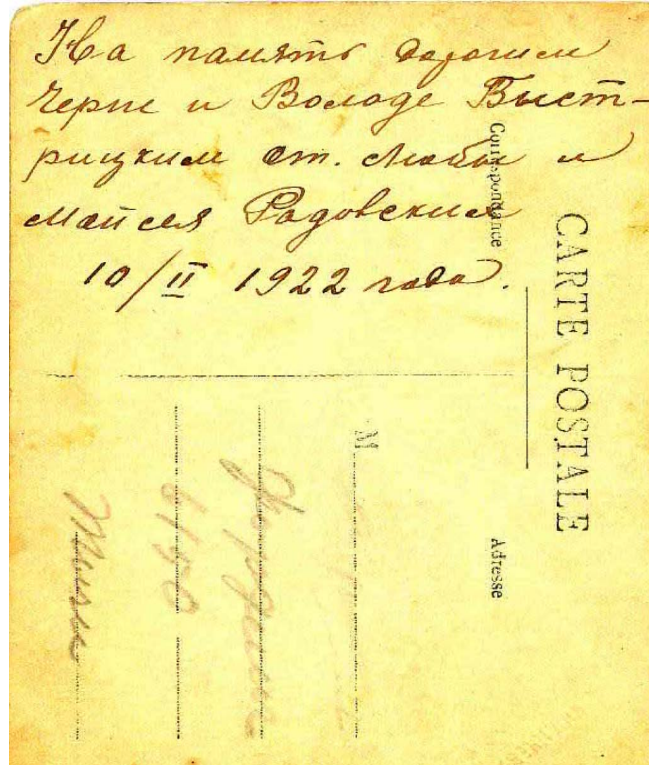 На память дорогим
Черне и Володе Быст-
рицким от. Любы и
Мойсея Радовских
10/II 1922 года.
CARTE POSTALE
Correspondance
Adresse
M